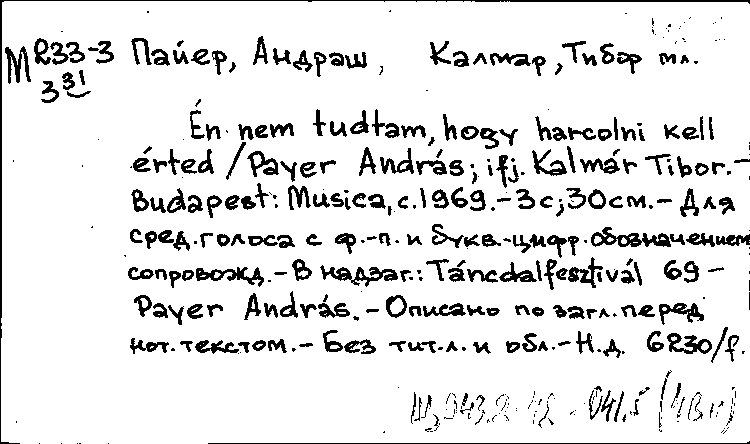 М 233-3 Пайер, Андраш, Калмар, Тибор мл.
3 31
Én nem tudtam, hogy harcolni kell
érted / Payer András; ifj. Kalmár Tibor.-
Budapest: Musica, c.1969.-3с; 30см.- Для
сред. голоса с ф.-п. и букв.-цифр. обозначением
сопровожд.- В надзаг.: Táncdalfesztivál 69-
Payer András.- Описано по загл. перед
нот. текстом.- Без тит.л. и обл.- Н.д. 6230/f.
Щ943.2-42